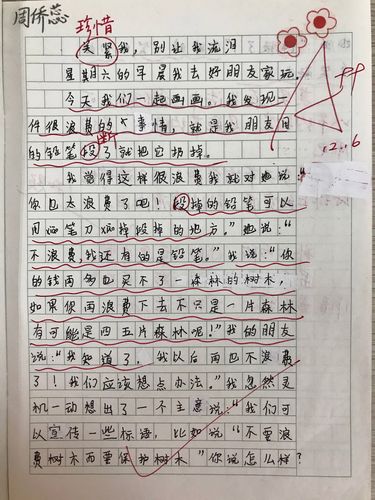 周侨蕊
珍惜
关紧我，别让我流泪
星期六的早晨我去好朋友家玩。
今天我们一起画画。我发现一
件很浪费的事情，就是我朋友用
断
的铅笔段了就把它扔掉。
我觉得这样很浪费我就对她说：“
你也太浪费了吧！段掉的铅笔可以
用刨笔刀刨掉段掉的地方。”她说：“
不浪费我还有的是铅笔。”我说：“你
的钱再多也买不了一森林的树木，
如果你再浪费下去不只是一片森林
有可能是四五片森林呢！”我的朋友
说：“我知道了，我以后再也不浪费
了！我们应该想点办法。”我忽然灵
机一动想出了一个主意说：“我们可
以宣传一些标语，比如说“不要浪
费树木而要保护树木”你说怎么样？
12.6